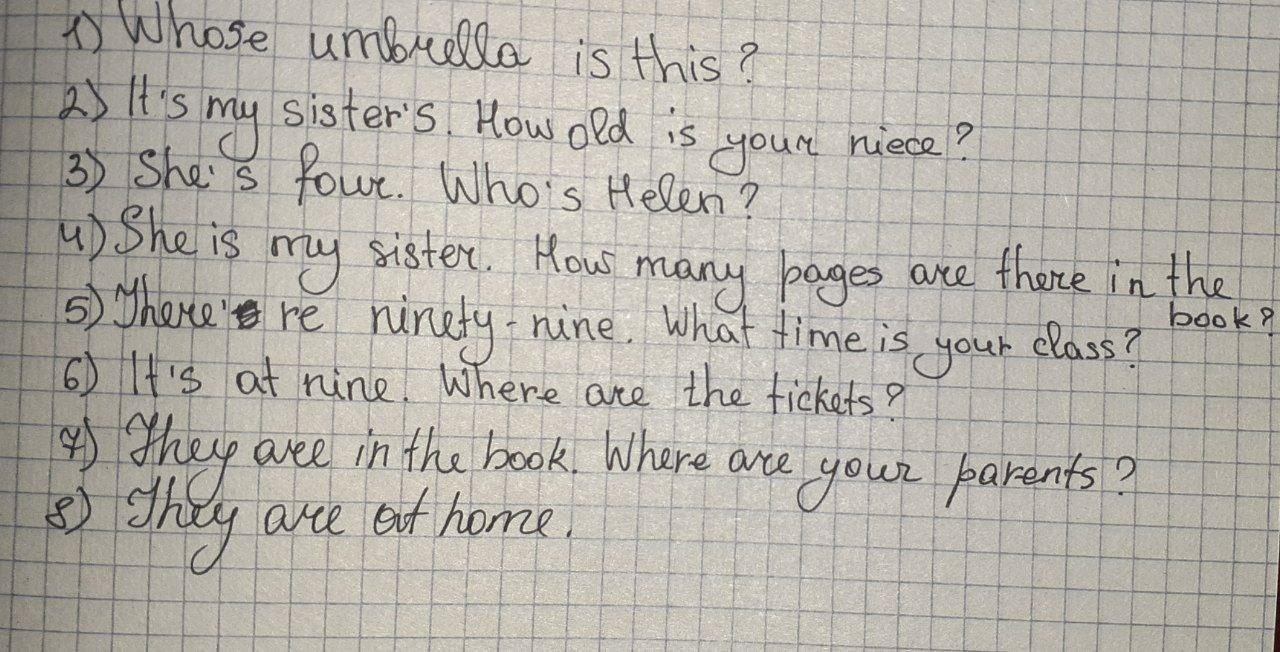 1) Whose umbrella is this?
2) It's my sister's. How old is your niece?
3) She's four. Who's Helen?
4) She is my sister. How many pages are there in the
book?
5) There're ninety-nine. What time is your class?
6) It's at nine. Where are the tickets?
7) They are in the book. Where are your parents?
8) They are at home.